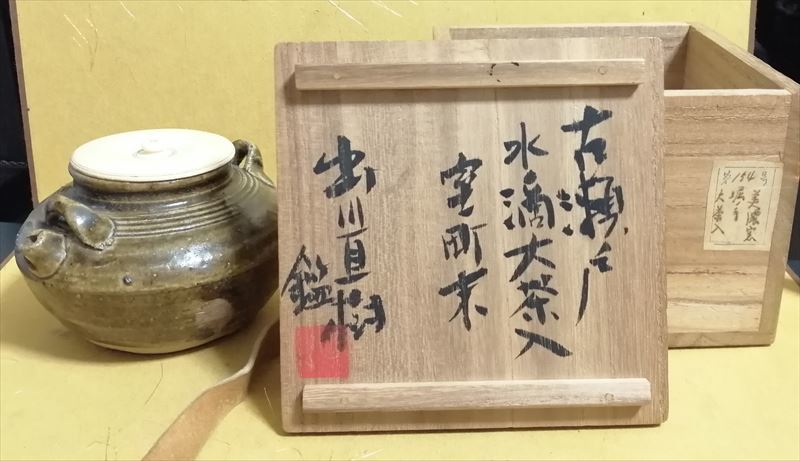 古瀬戸
水滴大茶入
室町末
出川直樹
鑑
第154号
美濃窯
堀手
大茶入